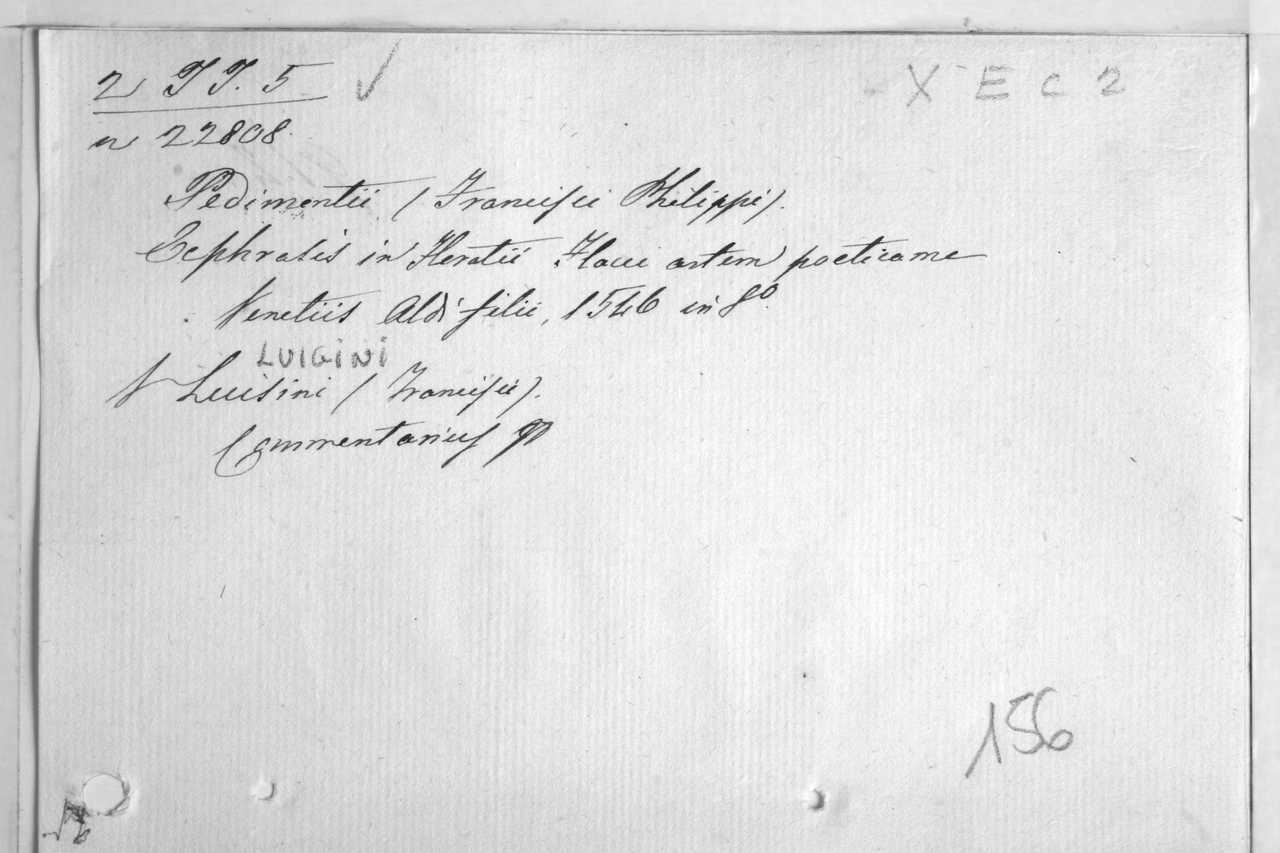 2 TT. 5 ✓ X E C 2
n 22808
Pedimontii (Francisci Philippi).
Ecphrasis in Horatii Flacci artem poeticame
Venetiis Aldi filii, 1546 in 8º
LUIGINI
V Luisini (Francisci).
Commentarius
156